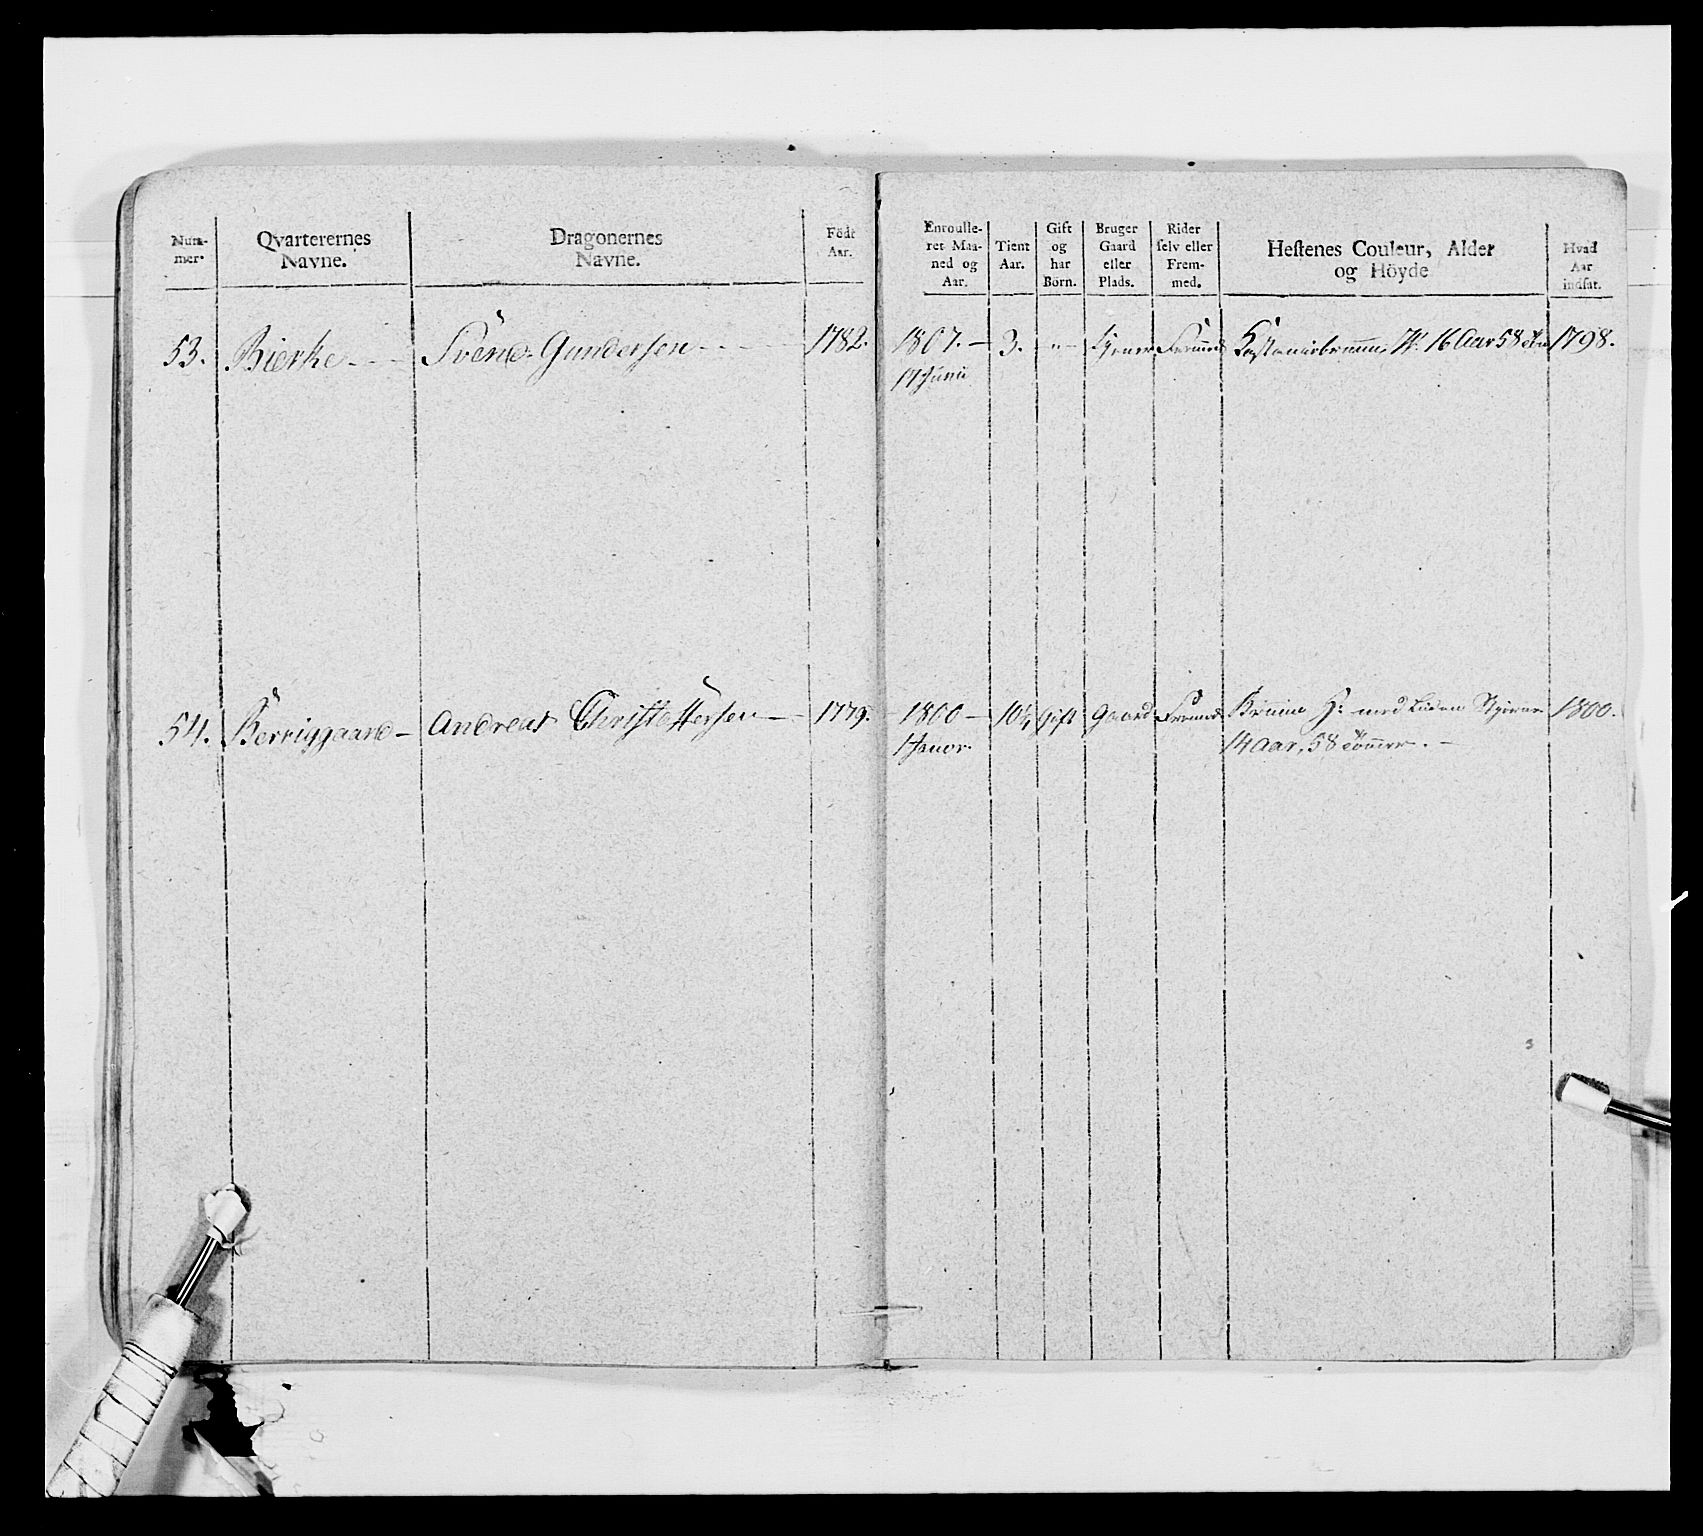 Num-
mer.
Qvarterernes
Navne.
Dragonernes
Navne.
Födt
Aar.
Enroulle-
ret Maa-
ned og
Aar.
Tient
Aar.
Gift
og
har
Börn.
Bruger
Gaard
eller
Plads.
Rider
selv eller
Frem-
med.
Hestenes Couleur, Alder
og Höyde
Hvad
Aar
indsat.
53. Bierke Svend Gundersen 1782. 1807. 3. Fremed Kastaniebruun H: 16 Aar 58 1798.
17 Junii
54. Berriggaard Andreas Christoffersen 1779. 1800 10½ Gift Gaard Fremed Bruun H: med Liden Stjerne 1800.
1 Janor.
14 Aar, 58 Tommer.